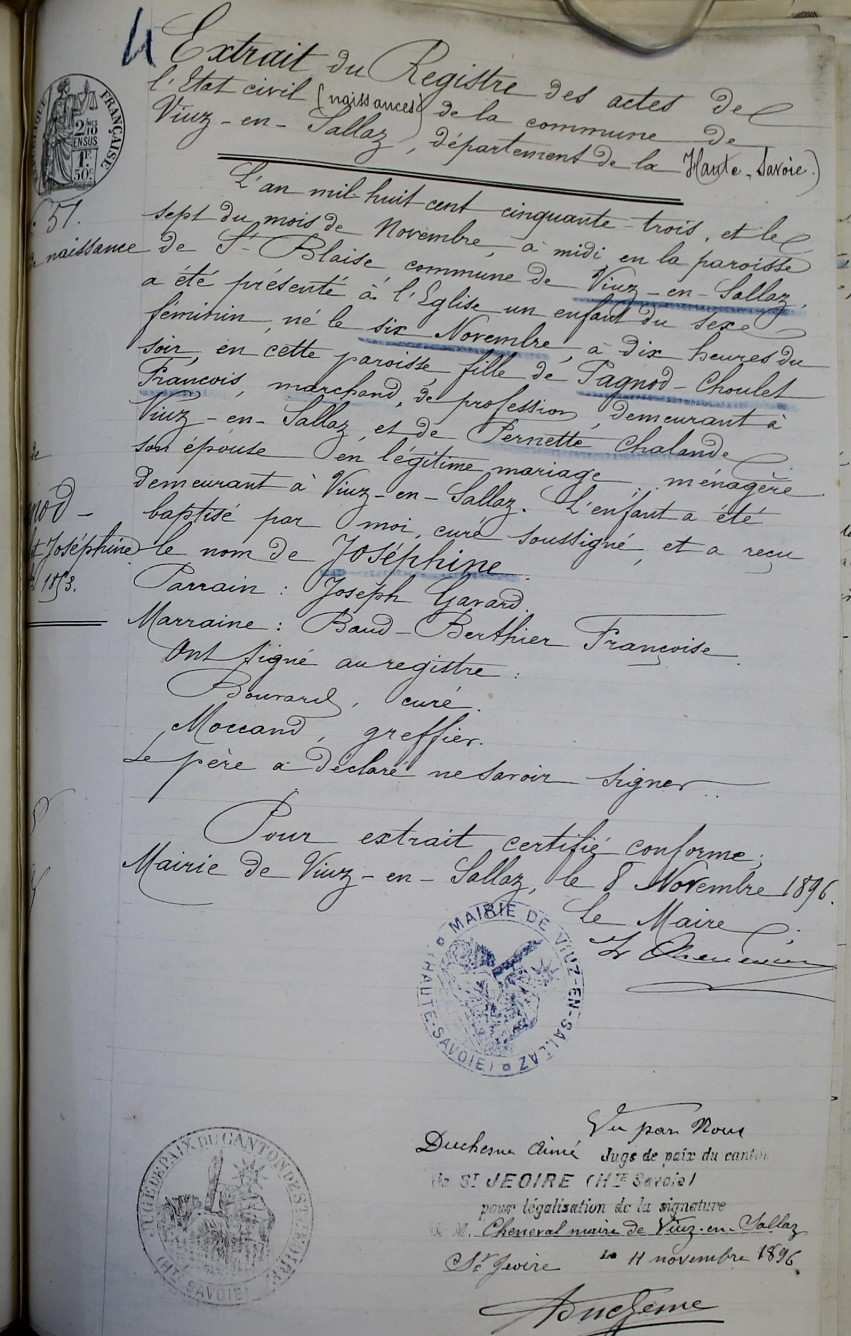 4
Extrait du Registre des actes de
l'Etat civil (naissances) de la commune de
Viuz-en-Sallaz, département de la Haute-Savoie.)
FRANÇAISE
2/10
EN SUS
1F
50c
L'an mil huit cent cinquante-trois, et le
sept du mois de Novembre, à midi en la paroisse
de St Blaise, commune de Viuz-en-Sallaz,
a été présenté à l'Eglise un enfant du sexe
féminin, né le six Novembre, à dix heures du
soir, en cette paroisse, fille de Pagnod-Choulet
François, marchand, de profession, demeurant à
Viuz-en-Sallaz, et de Pernette Chalande
son épouse en légitime mariage, ménagère
demeurant à Viuz-en-Sallaz. L'enfant a été
baptisé par moi, curé soussigné, et a reçu
le nom de Joséphine.
Parrain : Joseph Gavard.
Marraine : Baud-Berthier Françoise.
Ont signé au registre :
Bouvard, curé.
Moccand, greffier.
Le père a déclaré ne savoir signer.
51.
naissance
nod-
et Joséphine
1853.
Pour extrait certifié conforme,
Mairie de Viuz-en-Sallaz, le 8 Novembre 1896.
Le Maire,
MAIRIE DE VIUZ-EN-SALLAZ
(HAUTE-SAVOIE)
Vu par Nous
Duchesne Aimé Juge de paix du canton
de ST JEOIRE (Hte Savoie)
pour légalisation de la signature
de M. Cheneval maire de Viuz-en-Sallaz
St Jeoire le 11 novembre 1896
Duchesne
JUGE DE PAIX DU CANTON DE ST JEOIRE
(HTE SAVOIE)